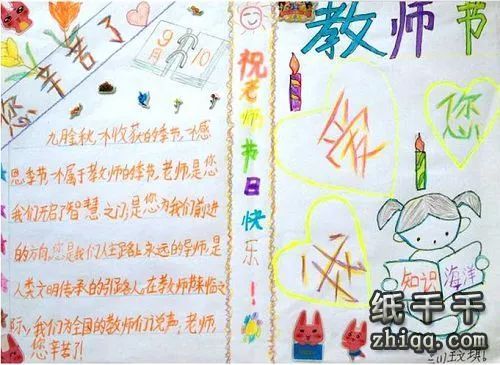 您辛苦了
9月10
九月金秋,个收获的季节,一个感
恩季节,一个属于教师的季节,老师,是您
我们开启了智慧之门,是您为我们前进
的方向,您是我们人生路上永远的导师,是
人类文明传承的引路人,在教师节来临之
际,我们为全国的教师们说声,老师,
您辛苦了!
祝老师节日快乐!
教师节
您
知识海洋
纸千千
zhiqq.com